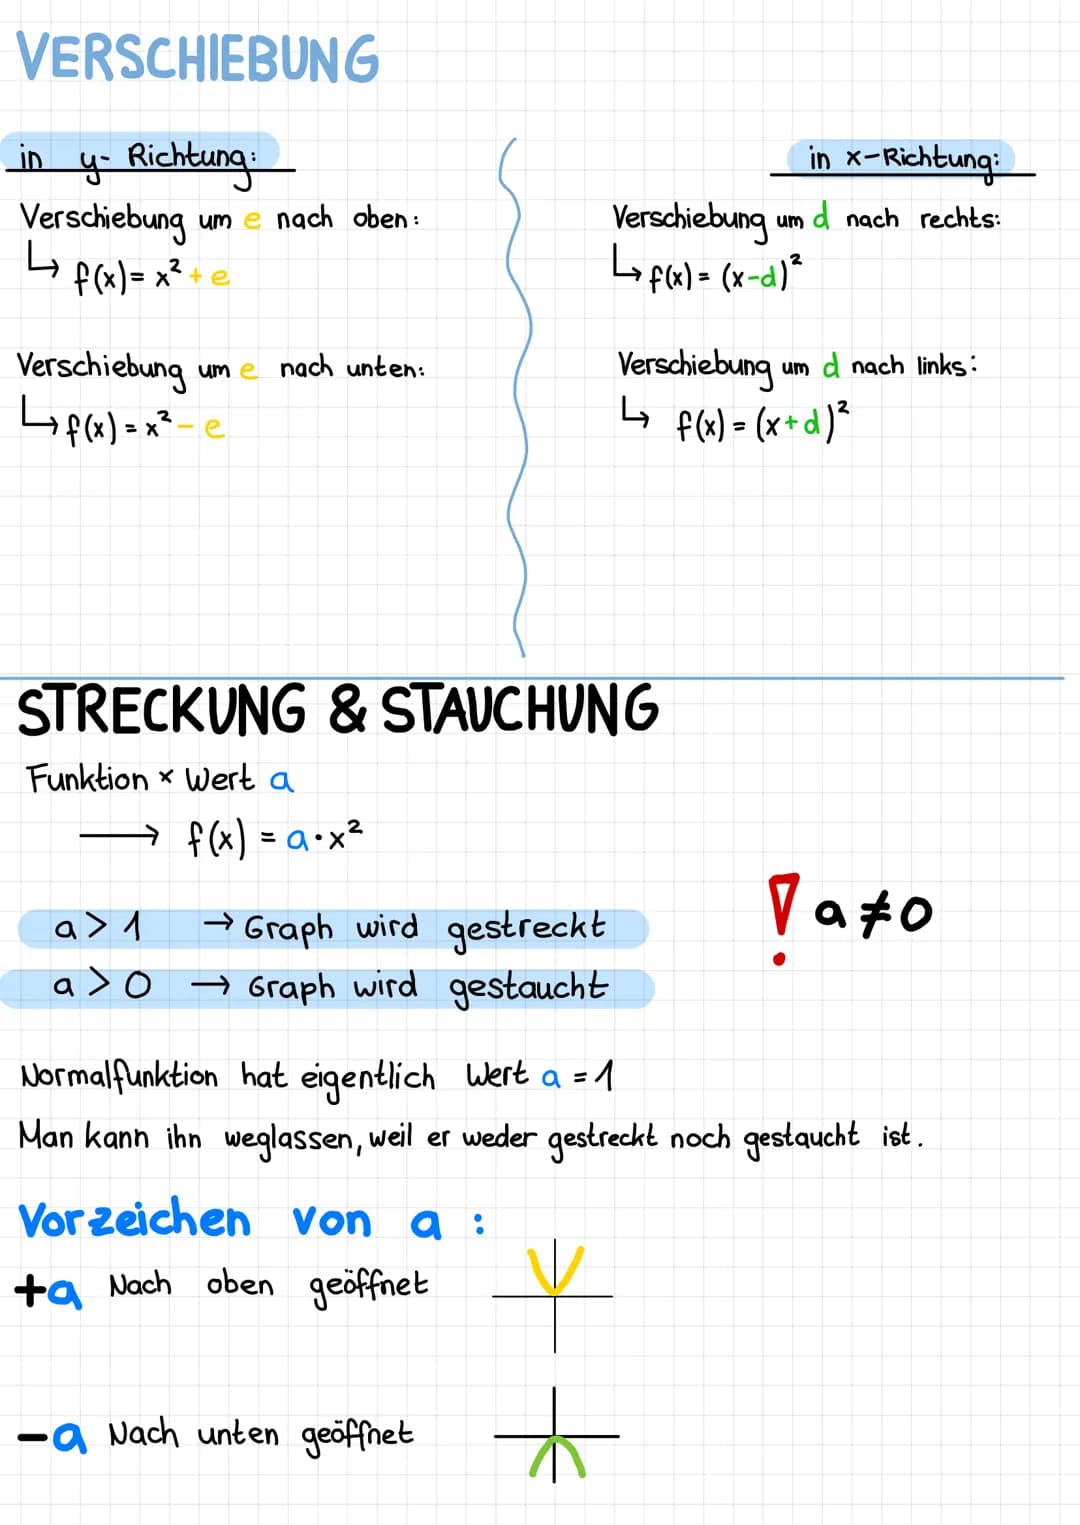 VERSCHIEBUNG
in y-Richtung:
Verschiebung um e nach oben:
↳ f(x) = x² + e
Verschiebung um e nach unten:
↳ f(x) = x² - e
in x-Richtung:
Verschiebung um d nach rechts:
↳ f(x) = (x-d)²
Verschiebung um d nach links:
↳ f(x) = (x+d)²
STRECKUNG & STAUCHUNG
Funktion × Wert a
→ f(x) = a·x²
a > 1 → Graph wird gestreckt
a > 0 → Graph wird gestaucht
! a ≠ 0
Normalfunktion hat eigentlich Wert a = 1
Man kann ihn weglassen, weil er weder gestreckt noch gestaucht ist.
Vorzeichen von a :
+a Nach oben geöffnet
-a Nach unten geöffnet